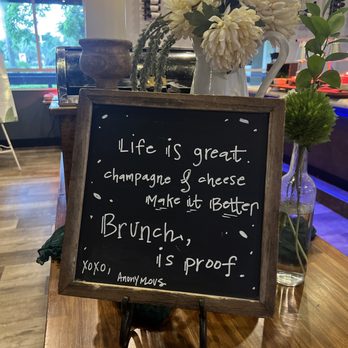 Life is great.
champagne & cheese
Make it Better
Brunch,
is proof.
xoxo,
Anonymous.